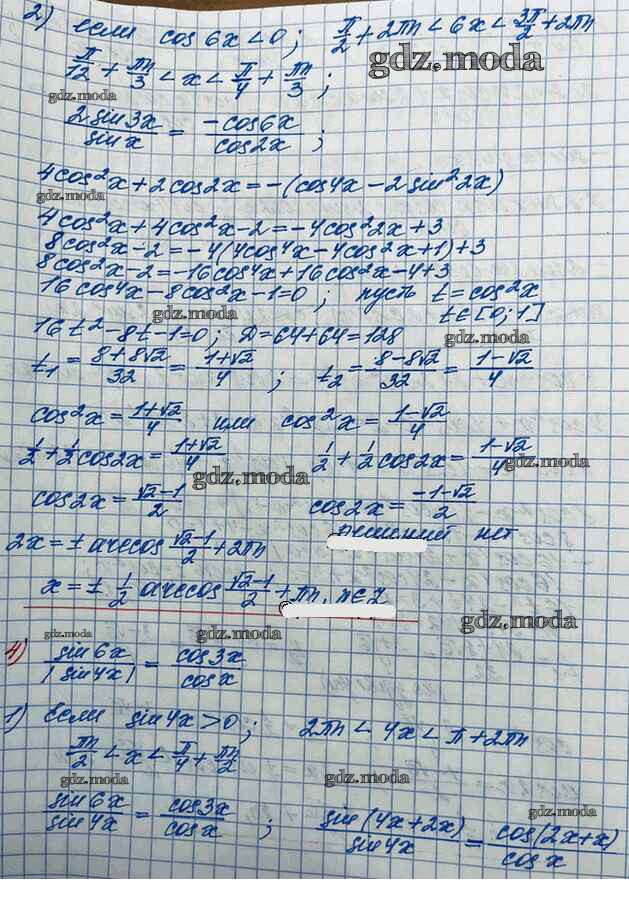 2) если cos6x<0; π/2+2πn<6x<3π/2+2πn
π/12+πn/3<x<π/4+πn/3;
gdz.moda
gdz.moda
2sin3x/sinx = -cos6x/cos2x;
gdz.moda
gdz.moda
4cos²x+2cos2x=-(cos4x-2sin²2x)
4cos²x+4cos²x-2=-4cos²2x+3
8cos²x-2=-4(4cos⁴x-4cos²x+1)+3
8cos²x-2=-16cos⁴x+16cos²x-4+3
16cos⁴x-8cos²x-1=0; пусть t=cos²x
t∈[0;1]
gdz.moda
16t²-8t-1=0; D=64+64=128
gdz.moda
t₁=8+8√2/32=1+√2/4; t₂=8-8√2/32=1-√2/4
cos²x=1+√2/4 или cos²x=1-√2/4
1/2+1/2cos2x=1+√2/4 1/2+1/2cos2x=1-√2/4
gdz.moda
gdz.moda
cos2x=√2-1/2 cos2x=-1-√2/2
решений нет
2x=±arccos √2-1/2+2πn
x=±1/2 arccos √2-1/2+πn, n∈Z
gdz.moda
gdz.moda
4) sin6x/|sin4x| = cos3x/cosx
gdz.moda
1) Если sin4x>0; 2πn<4x<π+2πn
πn/2<x<π/4+πn/2
gdz.moda
gdz.moda
sin6x/sin4x = cos3x/cosx; sin(4x+2x)/sin4x = cos(2x+x)/cosx
gdz.moda